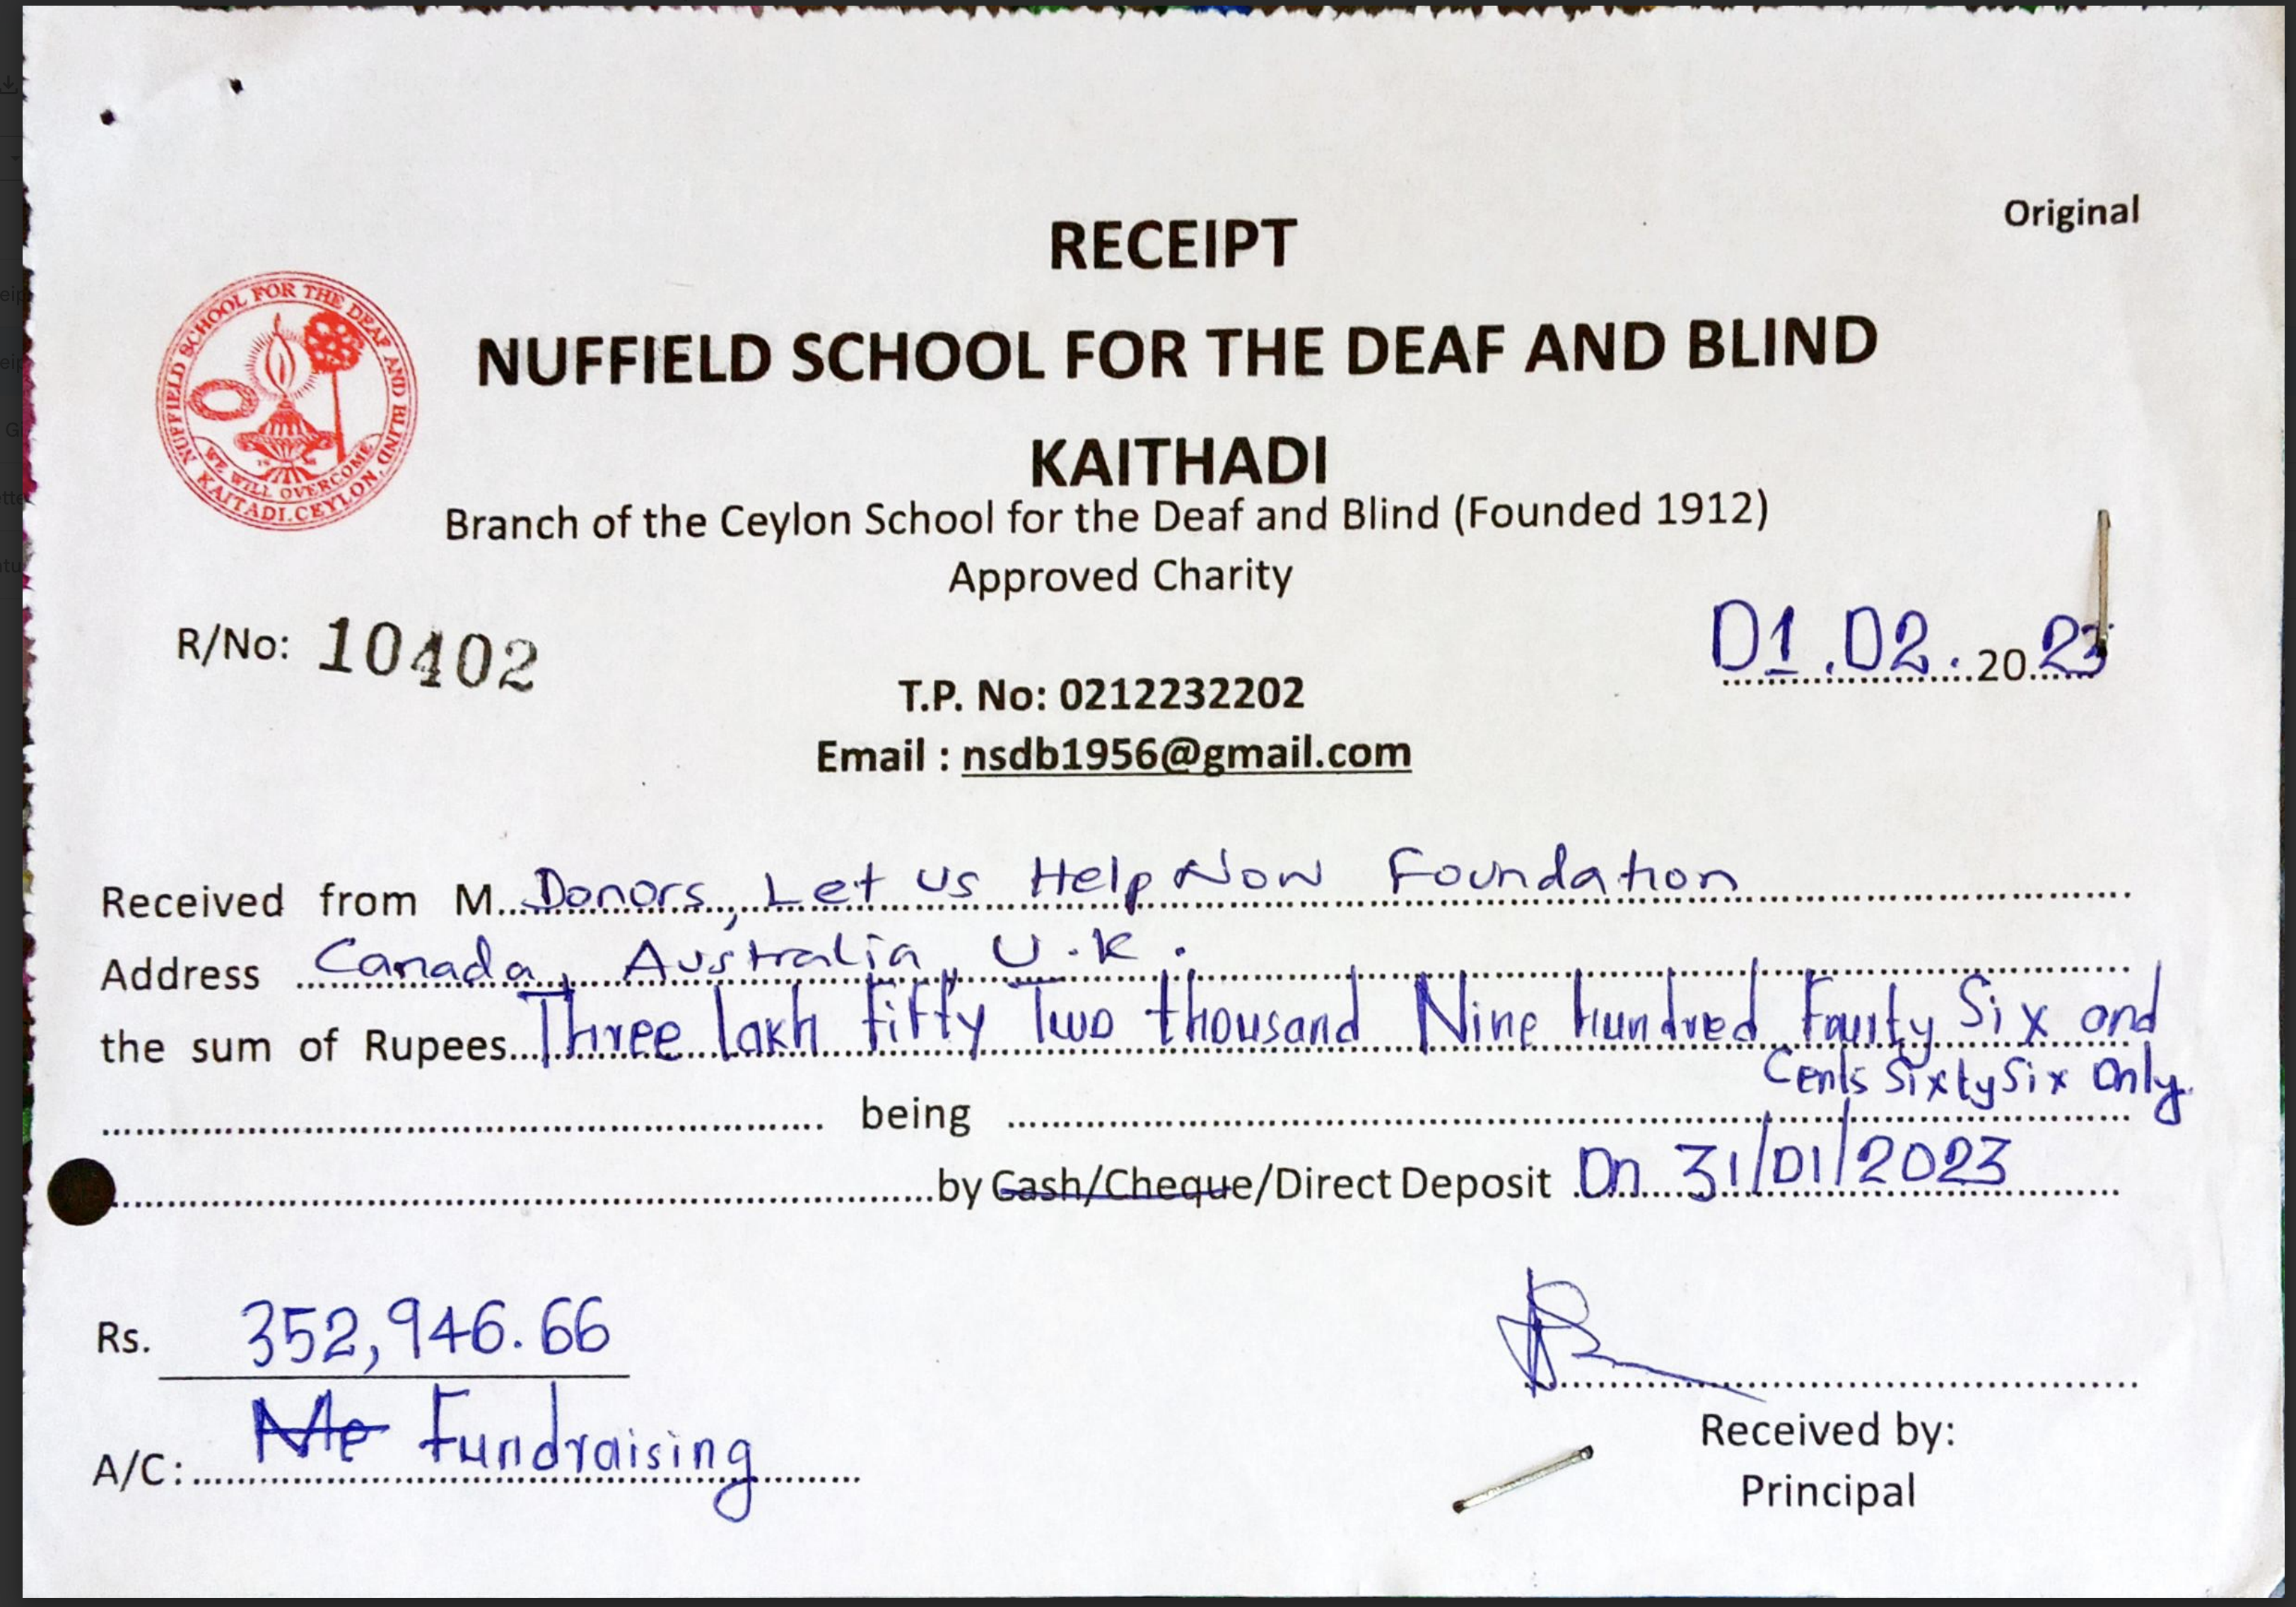 Original
RECEIPT
NUFFIELD SCHOOL FOR THE DEAF AND BLIND
KAITHADI
NUFFIELD SCHOOL FOR THE DEAF AND BLIND
WE WILL OVERCOME
KAITADI.CEYLON.
Branch of the Ceylon School for the Deaf and Blind (Founded 1912)
Approved Charity
R/No: 10402
01.02.2023
T.P. No: 0212232202
Email : nsdb1956@gmail.com
Received from M. Donors, Let us Help Now Foundation
Address Canada, Australia, U.K.
the sum of Rupees Three lakh Fifty Two thousand Nine hundred Fourty Six and
Cents Sixty Six Only.
being
by Cash/Cheque/Direct Deposit On 31/01/2023
Rs. 352,946.66
A/C: Me Fundraising
Received by:
Principal